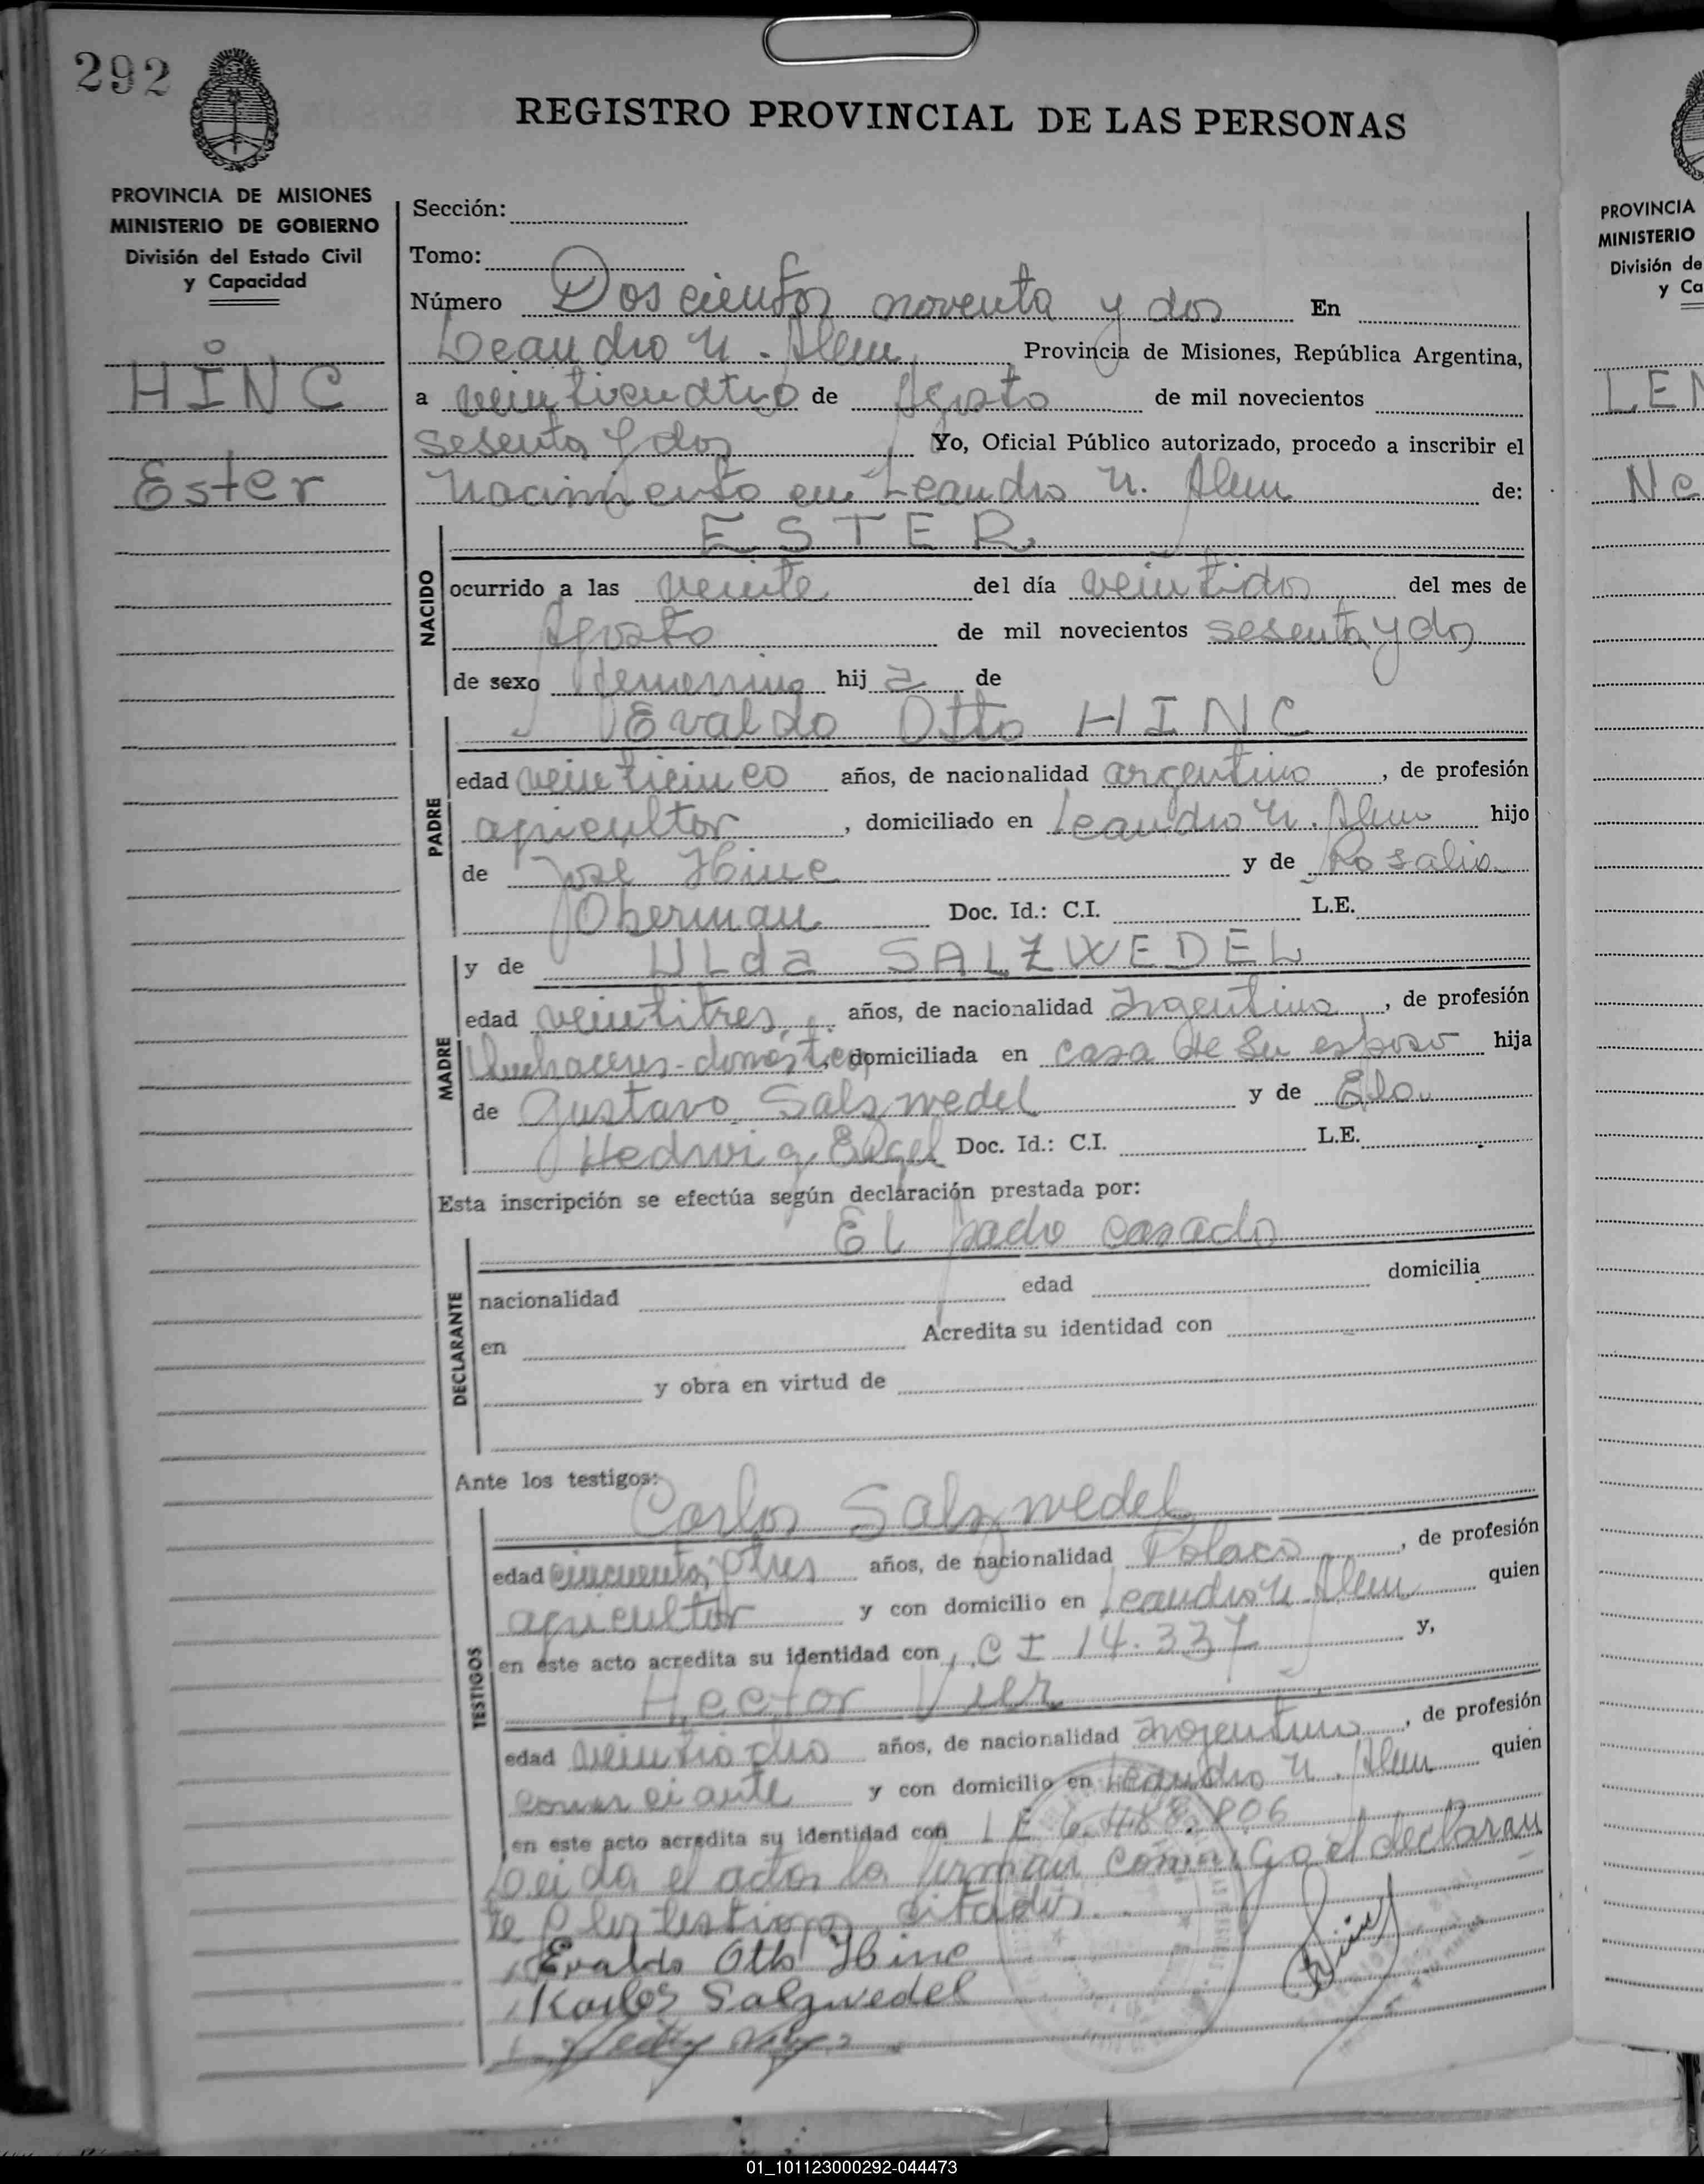 292
REGISTRO PROVINCIAL DE LAS PERSONAS
PROVINCIA DE MISIONES
MINISTERIO DE GOBIERNO
División del Estado Civil
y Capacidad
HINC
Ester
Sección:
Tomo:
Número Doscientos noventa y dos En
Leandro N. Alem Provincia de Misiones, República Argentina,
a veinticuatro de Agosto de mil novecientos
sesenta y dos Yo, Oficial Público autorizado, procedo a inscribir el
Nacimiento en Leandro N. Alem de:
NACIDO
ESTER
ocurrido a las veinte del día veintidos del mes de
Agosto de mil novecientos sesenta y dos
de sexo femenino hij a de
PADRE
Evaldo Otto HINC
edad veinticinco años, de nacionalidad argentino, de profesión
agricultor, domiciliado en Leandro N. Alem hijo
de José Hinc y de Rosalia
Oberman Doc. Id.: C.I. L.E.
MADRE
y de Ulda SALZWEDEL
edad veintitres años, de nacionalidad Argentina, de profesión
Quehaceres-domésticos, domiciliada en casa de su esposo hija
de Gustavo Salzwedel y de
Hedwig Doc. Id.: C.I. L.E.
Esta inscripción se efectúa según declaración prestada por:
DECLARANTE
El padre casado
nacionalidad edad domicilia
en Acredita su identidad con
y obra en virtud de
Ante los testigos:
TESTIGOS
Carlos Salzwedel
edad cincuenta y tres años, de nacionalidad Polaco, de profesión
agricultor y con domicilio en Leandro N. Alem quien
en este acto acredita su identidad con C I 14.337 y,
Hector Vier
edad veintiocho años, de nacionalidad Argentino, de profesión
comerciante y con domicilio en Leandro N. Alem quien
en este acto acredita su identidad con L E 6.488.806
Leida el acta, la firman conmigo el declaran
te y los testigos citados.
Evaldo Otto Hinc
Karlos Salzwedel
PROVINCIA
MINISTERIO
División de
y Ca
LEN
Ne
01_101123000292-044473